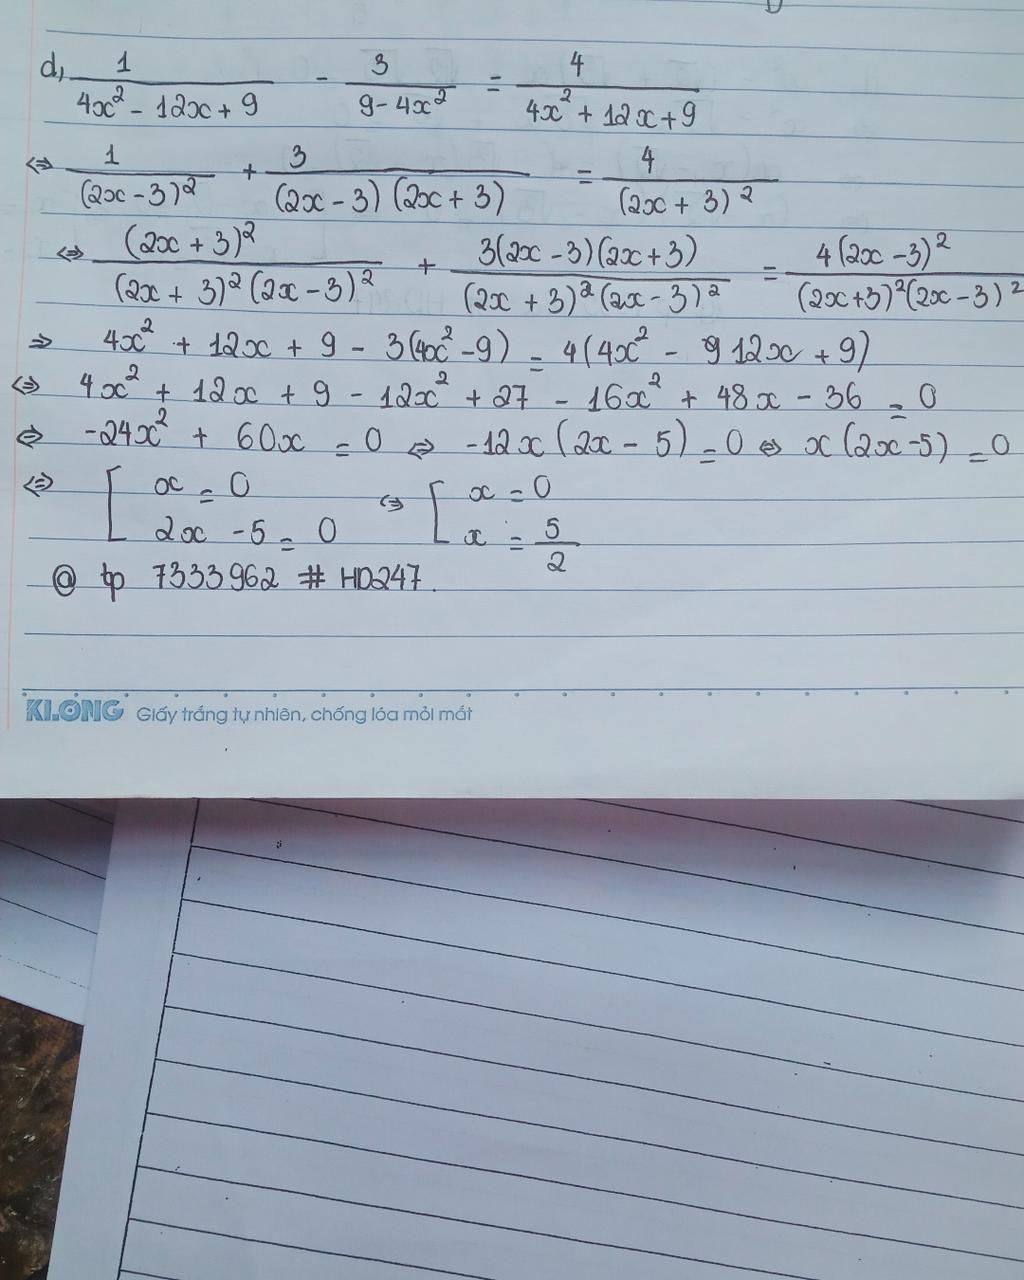 d, 1/(4x² - 12x + 9) - 3/(9 - 4x²) = 4/(4x² + 12x + 9)
⇔ 1/(2x - 3)² + 3/((2x - 3)(2x + 3)) = 4/(2x + 3)²
⇔ (2x + 3)²/((2x + 3)²(2x - 3)²) + 3(2x - 3)(2x + 3)/((2x + 3)²(2x - 3)²) = 4(2x - 3)²/((2x + 3)²(2x - 3)²)
⇒ 4x² + 12x + 9 - 3(4x² - 9) = 4(4x² - 9 12x + 9)
⇔ 4x² + 12x + 9 - 12x² + 27 - 16x² + 48x - 36 = 0
⇔ -24x² + 60x = 0 ⇔ -12x(2x - 5) = 0 ⇔ x(2x - 5) = 0
⇔ [ x = 0 ⇔ [ x = 0
2x - 5 = 0 x = 5/2
@ tp 7333962 # HD247.
KLONG Giấy trắng tự nhiên, chống lóa mỏi mắt